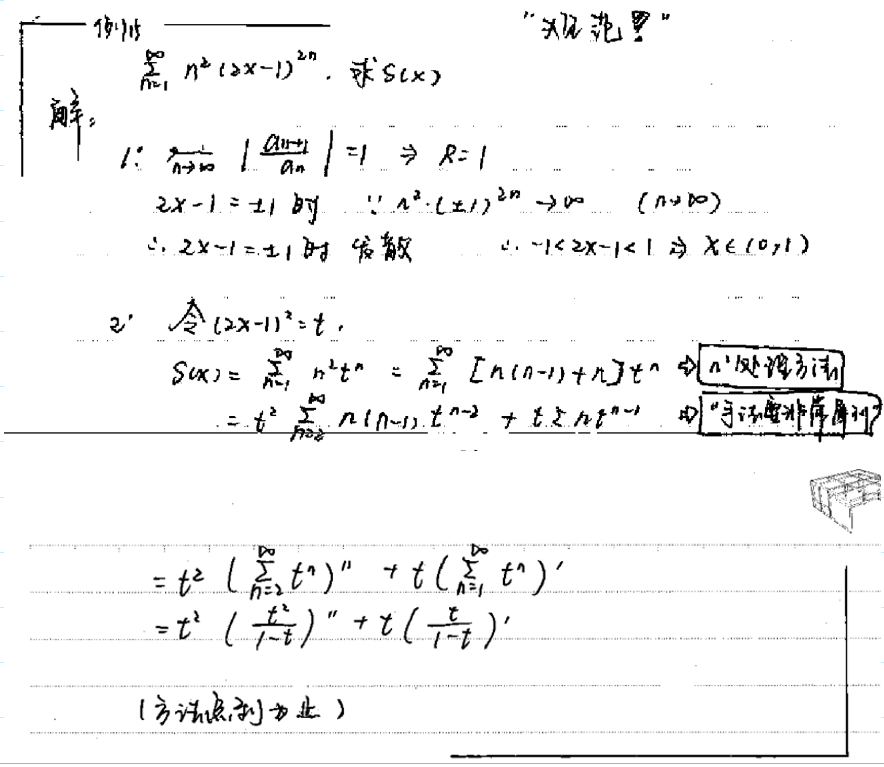 例15 "规范!"
∑_{n=1}^{∞} n²(2x-1)^{2n}. 求S(x)
解:
1° lim_{n→∞} |a_{n+1}/a_n| = 1 ⇒ R=1
2x-1=±1时 ∵ n²·(±1)^{2n}→∞ (n→∞)
∴ 2x-1=±1时 发散 ∴ -1<2x-1<1 ⇒ x∈(0,1)
2° 令(2x-1)²=t.
S(x)= ∑_{n=1}^{∞} n²tⁿ = ∑_{n=1}^{∞} [n(n-1)+n]tⁿ ⇨ n²处理方法
= t² ∑_{n=2}^{∞} n(n-1) t^{n-2} + t∑nt^{n-1} ⇨ "手法要非常熟"
= t² (∑_{n=2}^{∞} tⁿ)'' + t(∑_{n=1}^{∞} tⁿ)'
= t² (t²/(1-t))'' + t(t/(1-t))'
(方法点到为止)